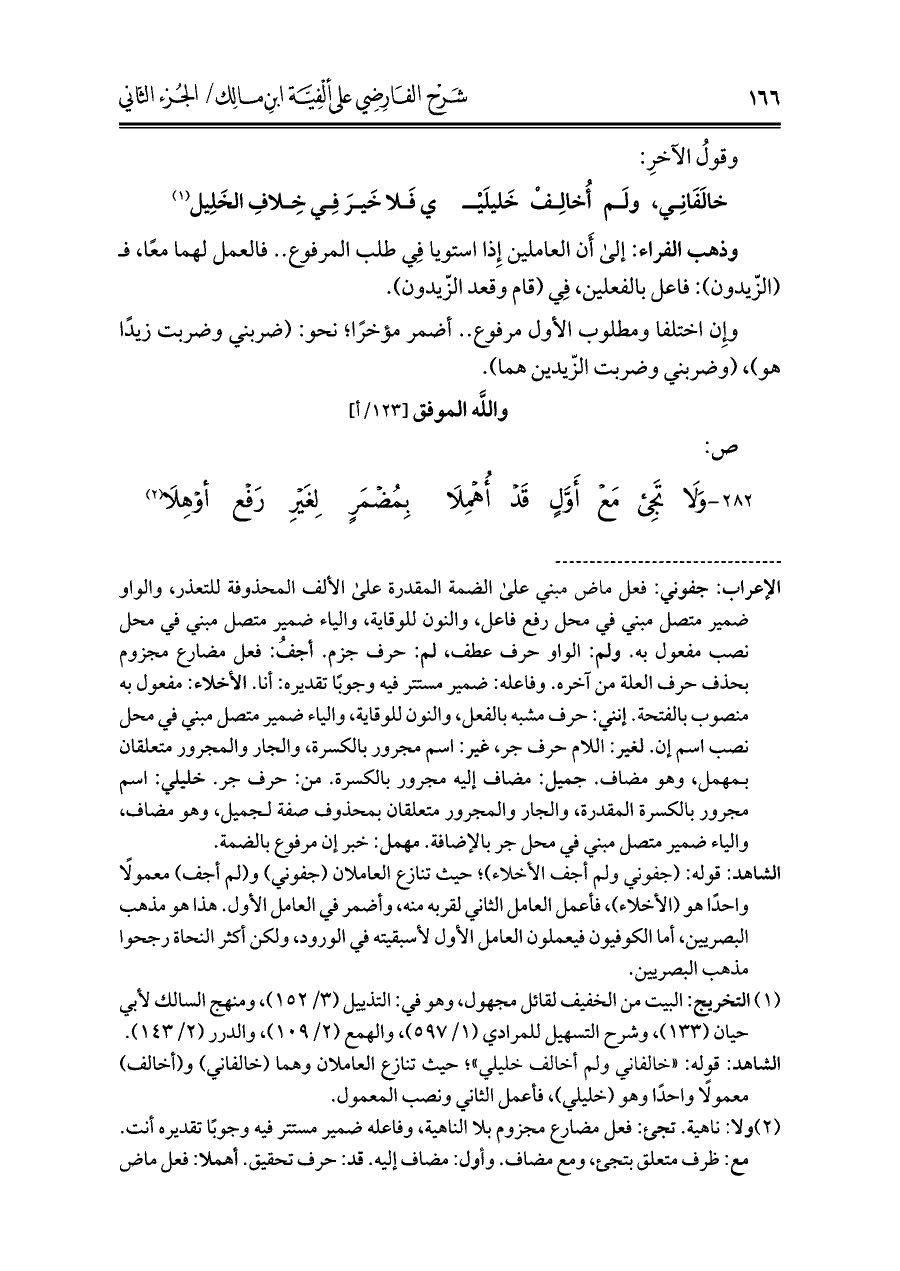 ١٦٦ شَرْح الفَارِضِي على أَلْفِيَّة ابنِ مَالِك/ الجُزء الثاني
وقولُ الآخرِ:
خالَفَانِـي، ولَـم أُخالِـفْ خَليلَيْــ ـي فَـلا خَيـرَ فِـي خِـلافِ الخَلِيلِ(١)
وذهب الفراء: إلىٰ أَن العاملين إِذا استويا فِي طلب المرفوع.. فالعمل لهما معًا، فـ
(الزّيدون): فاعل بالفعلين، فِي (قام وقعد الزّيدون).
وإِن اختلفا ومطلوب الأول مرفوع.. أضمر مؤخرًا؛ نحو: (ضربني وضربت زيدًا
هو)، (وضربني وضربت الزّيدين هما).
واللَّه الموفق [١٢٣/ أ]
ص:
٢٨٢- وَلَا تَجِئْ مَعْ أَوَّلٍ قَدْ أُهْمِلَا بِمُضْمَرٍ لِغَيْرِ رَفْعٍ أُوْهِلَا(٢)
الإعراب: جفوني: فعل ماض مبني علىٰ الضمة المقدرة علىٰ الألف المحذوفة للتعذر، والواو
ضمير متصل مبني في محل رفع فاعل، والنون للوقاية، والياء ضمير متصل مبني في محل
نصب مفعول به. ولم: الواو حرف عطف، لم: حرف جزم. أجفُ: فعل مضارع مجزوم
بحذف حرف العلة من آخره. وفاعله: ضمير مستتر فيه وجوبًا تقديره: أنا. الأخلاء: مفعول به
منصوب بالفتحة. إنني: حرف مشبه بالفعل، والنون للوقاية، والياء ضمير متصل مبني في محل
نصب اسم إن. لغير: اللام حرف جر، غير: اسم مجرور بالكسرة، والجار والمجرور متعلقان
بـمهمل، وهو مضاف. جميل: مضاف إليه مجرور بالكسرة. من: حرف جر. خليلي: اسم
مجرور بالكسرة المقدرة، والجار والمجرور متعلقان بمحذوف صفة لـجميل، وهو مضاف،
والياء ضمير متصل مبني في محل جر بالإضافة. مهمل: خبر إن مرفوع بالضمة.
الشاهد: قوله: (جفوني ولم أجف الأخلاء)؛ حيث تنازع العاملان (جفوني) و(لم أجف) معمولًا
واحدًا هو (الأخلاء)، فأعمل العامل الثاني لقربه منه، وأضمر في العامل الأول. هذا هو مذهب
البصريين، أما الكوفيون فيعملون العامل الأول لأسبقيته في الورود، ولكن أكثر النحاة رجحوا
مذهب البصريين.
(١) التخريج: البيت من الخفيف لقائل مجهول، وهو في: التذييل (٣/ ١٥٢)، ومنهج السالك لأبي
حيان (١٣٣)، وشرح التسهيل للمرادي (١/ ٥٩٧)، والهمع (٢/ ١٠٩)، والدرر (٢/ ١٤٣).
الشاهد: قوله: «خالفاني ولم أخالف خليلي»؛ حيث تنازع العاملان وهما (خالفاني) و(أخالف)
معمولًا واحدًا وهو (خليلي)، فأعمل الثاني ونصب المعمول.
(٢)ولا: ناهية. تجئ: فعل مضارع مجزوم بلا الناهية، وفاعله ضمير مستتر فيه وجوبًا تقديره أنت.
مع: ظرف متعلق بتجئ، ومع مضاف. وأول: مضاف إليه. قد: حرف تحقيق. أهملا: فعل ماض